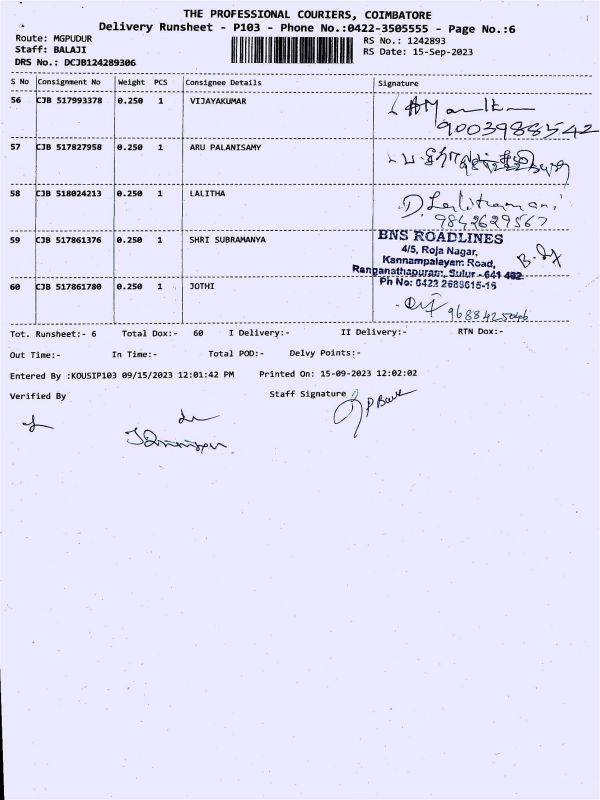 THE PROFESSIONAL COURIERS, COIMBATORE
Delivery Runsheet - P103 - Phone No.:0422-3505555 - Page No.:6
Route: MGPUDUR
RS No.: 1242893
Staff: BALAJI
RS Date: 15-Sep-2023
DRS No.: DCJB124289306
S No Consignment No Weight PCS Consignee Details Signature
56 CJB 517993378 0.250 1 VIJAYAKUMAR
9003988542
57 CJB 517827958 0.250 1 ARU PALANISAMY
58 CJB 518024213 0.250 1 LALITHA D. Lalithamani
9842629567
59 CJB 517861376 0.250 1 SHRI SUBRAMANYA
BNS ROADLINES
4/5, Roja Nagar,
Kannampalayam Road,
Ranganathapuram, Sulur - 641 402
Ph No: 0422 2688615-16
60 CJB 517861780 0.250 1 JOTHI
Tot. Runsheet:- 6 Total Dox:- 60 I Delivery:- II Delivery:- RTN Dox:-
Out Time:- In Time:- Total POD:- Delvy Points:-
Entered By :KOUSIP103 09/15/2023 12:01:42 PM Printed On: 15-09-2023 12:02:02
Verified By Staff Signature